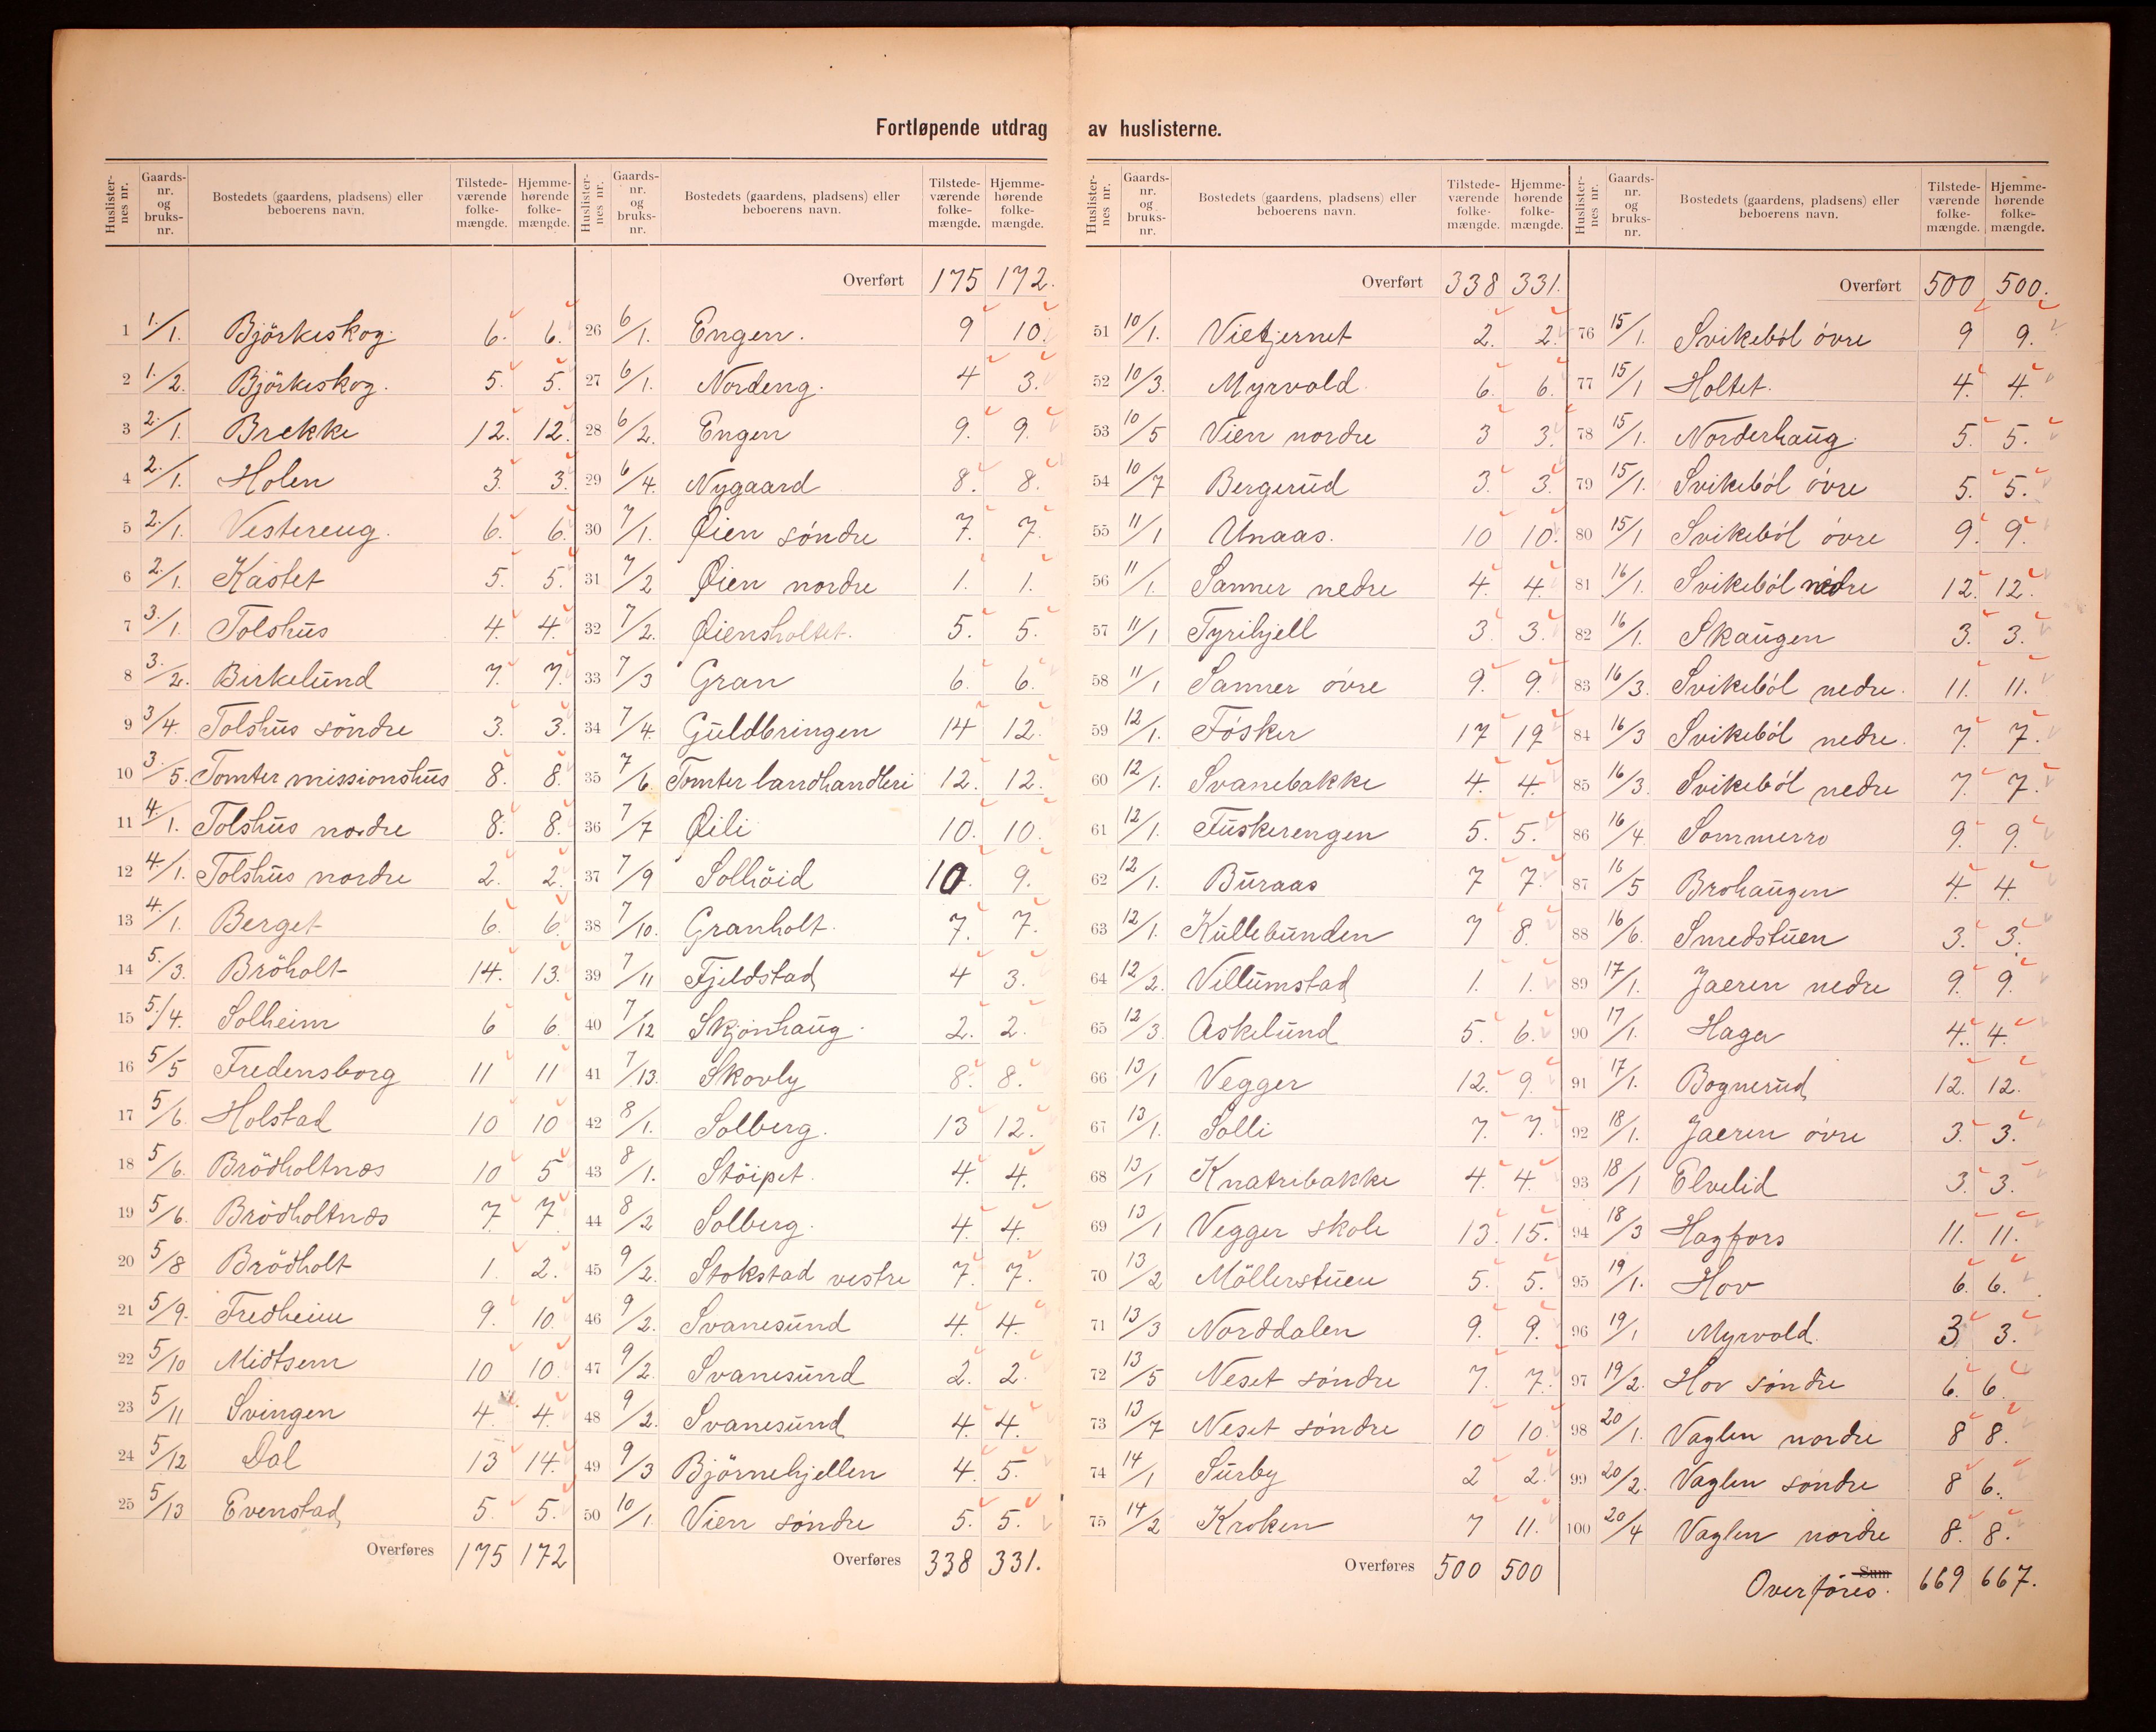 Fortløpende utdrag av huslisterne.
Huslister-nes nr. Gaards-nr. og bruks-nr. Bostedets (gaardens, pladsens) eller beboerens navn. Tilstede-værende folke-mængde. Hjemme-hørende folke-mængde.
1 1./1. Björkeskog. 6. 6.
2 1./2. Björkeskog. 5. 5.
3 2./1. Brekke 12. 12.
4 2./1. Holen 3. 3.
5 2./1. Vestereng. 6. 6.
6 2./1. Kastet 5. 5.
7 3./1. Tolshus 4. 4.
8 3./2. Birkelund 7. 7.
9 3/4. Tolshus söndre 3. 3.
10 3./5. Tomter missionshus 8. 8.
11 4./1. Tolshus nordre 8. 8.
12 4./1. Tolshus nordre 2. 2.
13 4./1. Berget 6. 6.
14 5./3. Bröholt 14. 13.
15 5./4. Solheim 6 6.
16 5/5 Fredensborg 11 11
17 5/6. Holstad 10 10
18 5/6. Brödholtnæs 10 5
19 5/6. Brödholtnæs 7. 7.
20 5/8 Brödholt 1. 2.
21 5/9. Fredheim 9. 10.
22 5/10 Midtsem 10 10.
23 5/11 Svingen 4. 4.
24 5/12 Dal 13 14.
25 5/13 Evenstad 5. 5.
Overføres 175 172
Huslister-nes nr. Gaards-nr. og bruks-nr. Bostedets (gaardens, pladsens) eller beboerens navn. Tilstede-værende folke-mængde. Hjemme-hørende folke-mængde.
Overført 175 172.
26 6/1. Engen. 9 10.
27 6/1. Nordeng. 4 3.
28 6/2. Engen 9. 9.
29 6/4. Nygaard 8. 8.
30 7/1. Øien söndre 7. 7.
31 7/2 Øien nordre 1. 1.
32 7/2. Øiensholtet. 5. 5.
33 7/3 Gran 6. 6.
34 7/4. Guldbringen 14 12.
35 7/6. Tomter landhandleri 12. 12.
36 7/7 Øili 10. 10.
37 7/9 Solhöid 10. 9.
38 7/10. Granholt. 7. 7.
39 7/11 Fjeldstad 4 3.
40 7/12 Skjönhaug. 2. 2.
41 7/13. Skovly 8. 8.
42 8/1. Solberg. 13 12.
43 8/1. Stöipet. 4. 4.
44 8/2 Solberg. 4. 4.
45 9/2. Stokstad vestre 7. 7.
46 9/2. Svanesund 4. 4.
47 9/2. Svanesund 2. 2.
48 9/2. Svanesund 4. 4.
49 9/3 Björnehjellen 4. 5.
50 10/1. Vien söndre 5. 5.
Overføres 338 331.
Huslister-nes nr. Gaards-nr. og bruks-nr. Bostedets (gaardens, pladsens) eller beboerens navn. Tilstede-værende folke-mængde. Hjemme-hørende folke-mængde.
Overført 338 331.
51 10/1. Vietjernet 2. 2.
52 10/3. Myrvold. 6. 6.
53 10/5 Vien nordre 3 3.
54 10/7 Bergerud 3. 3.
55 11/1 Unaas. 10 10.
56 11/1. Sanner nedre 4. 4.
57 11/1 Tyrihjell 3. 3.
58 11/1 Sanner övre 9. 9.
59 12/1. Fösker 17 19
60 12/1. Svanebakke 4. 4.
61 12/1. Fuskerengen 5. 5.
62 12/1. Buraas 7 7.
63 12/1. Kullebunden 7 8.
64 12/2. Villumstad 1. 1.
65 12/3. Askelund 5. 6.
66 13/1 Vegger 12. 9.
67 13/1. Solli 7. 7.
68 13/1 Knatribakke 4. 4.
69 13/1 Vegger skole 13. 15.
70 13/2 Möllerstuen 5. 5.
71 13/3 Norddalen 9. 9.
72 13/5 Neset söndre 7. 7.
73 13/7 Neset söndre 10 10.
74 14/1 Surby 2 2.
75 14/2 Kroken 7 11.
Overføres 500 500
Huslister-nes nr. Gaards-nr. og bruks-nr. Bostedets (gaardens, pladsens) eller beboerens navn. Tilstede-værende folke-mængde. Hjemme-hørende folke-mængde.
Overført 500 500.
76 15/1. Svikeböl övre 9 9.
77 15/1 Holtet. 4. 4.
78 15/1. Norderhaug. 5. 5.
79 15/1. Svikeböl övre 5. 5.
80 15/1 Svikeböl övre 9. 9.
81 16/1. Svikeböl nedre 12. 12.
82 16/1. Skaugen 3. 3.
83 16/3. Svikeböl nedre. 11. 11.
84 16/3 Svikeböl nedre. 7. 7.
85 16/3. Svikeböl nedre 7. 7.
86 16/4 Sommerro 9. 9.
87 16/5 Brohaugen 4. 4.
88 16/6. Smedstuen 3. 3.
89 17/1. Jaeren nedre 9. 9.
90 17/1. Haga 4. 4.
91 17/1. Bognerud 12. 12.
92 18/1. Jaeren övre 3. 3.
93 18/1 Elvelid 3. 3.
94 18/3 Hagfors 11. 11.
95 19/1. Hov 6. 6.
96 19/1 Myrvold. 3 3.
97 19/2. Hov söndre 6. 6.
98 20/1. Vaglen nordre 8 8.
99 20/2. Vaglen söndre 8 6.
100 20/4 Vaglen nordre 8. 8.
Sum Overföres. 669 667.